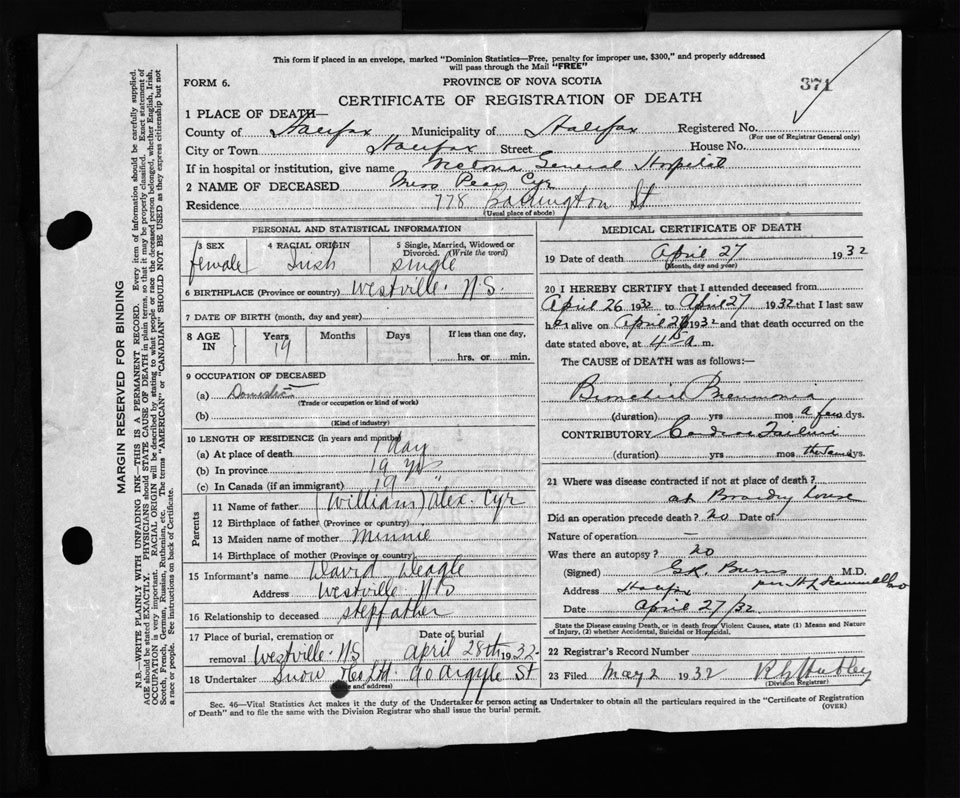 This form if placed in an envelope, marked "Dominion Statistics—Free, penalty for improper use, $300," and properly addressed
will pass through the Mail "FREE"
FORM 6.
PROVINCE OF NOVA SCOTIA
371
CERTIFICATE OF REGISTRATION OF DEATH
1 PLACE OF DEATH—
County of Halifax Municipality of Halifax Registered No.
(For use of Registrar General only)
City or Town Halifax Street House No.
If in hospital or institution, give name Victoria General Hospital
2 NAME OF DECEASED Miss Cyr
Residence 778 Barrington St
(Usual place of abode)
PERSONAL AND STATISTICAL INFORMATION
3 SEX 4 RACIAL ORIGIN 5 Single, Married, Widowed or Divorced. (Write the word)
female Irish single
6 BIRTHPLACE (Province or country) Westville. N.S.
7 DATE OF BIRTH (month, day and year)
8 AGE IN Years Months Days If less than one day,
19 hrs. or min.
9 OCCUPATION OF DECEASED
(a) Domestic
(Trade or occupation or kind of work)
(b)
(Kind of industry)
10 LENGTH OF RESIDENCE (in years and months)
(a) At place of death 1 day
(b) In province 19 yrs
(c) In Canada (if an immigrant) 19 "
Parents
11 Name of father (William) Alex. Cyr
12 Birthplace of father (Province or country)
13 Maiden name of mother Minnie
14 Birthplace of mother (Province or country)
15 Informant's name David Weagle
Address Westville N/S
16 Relationship to deceased stepfather
17 Place of burial, cremation or removal Westville. N/S Date of burial April 28th 1932
18 Undertaker Snow 90 Argyle St
(Name and address)
MEDICAL CERTIFICATE OF DEATH
19 Date of death April 27 1932
(Month, day and year)
20 I HEREBY CERTIFY that I attended deceased from
April 26 1932 to April 27 1932 that I last saw
her alive on April 26 1932 and that death occurred on
date stated above, at 4 a. m.
The CAUSE OF DEATH was as follows:—
Bronchial Pneumonia
(duration) yrs mos a few dys.
CONTRIBUTORY Cardiac Failure
(duration) yrs mos the same dys.
21 Where was disease contracted if not at place of death?
at house
Did an operation precede death? no Date of
Nature of operation —
Was there an autopsy? no
(Signed) G.R. Burns M.D.
Address Halifax
Date April 27/32
State the Disease causing Death, or in death from Violent Causes, state (1) Means and Nature of Injury, (2) whether Accidental, Suicidal or Homicidal.
22 Registrar's Record Number
23 Filed May 2 1932
(Division Registrar)
Sec. 46—Vital Statistics Act makes it the duty of the Undertaker or person acting as Undertaker to obtain all the particulars required in the "Certificate of Registration
of Death" and to file the same with the Division Registrar who shall issue the burial permit.
(OVER)
MARGIN RESERVED FOR BINDING
N.B—WRITE PLAINLY WITH UNFADING INK—THIS IS A PERMANENT RECORD. Every item of information should be carefully supplied.
AGE should be stated EXACTLY. PHYSICIANS should STATE CAUSE OF DEATH in plain terms, so that it may be properly classified. Exact statement of
OCCUPATION is very important. RACIAL ORIGIN will be described by stating to what people or race the deceased person belonged, whether English, Irish,
Scotch, French, German, Russian, Ruthenian, etc. The terms "AMERICAN" or "CANADIAN" SHOULD NOT BE USED as they express citizenship but not
a race or people. See instructions on back of Certificate.